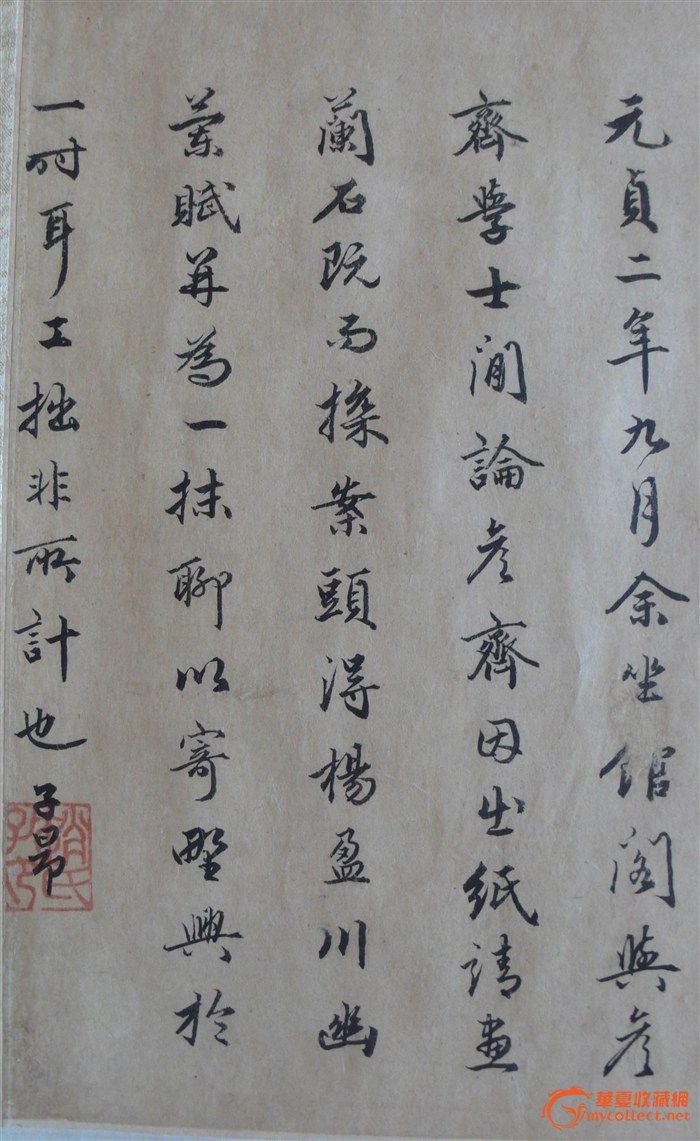 元貞二年九月余坐館閣與彦
齊學士閒論彦齊因出紙請畫
蘭石既而探案頭得楊盈川幽
蘭賦并為一抹聊以寄野興於
一时耳工拙非所計也子昂
趙氏子昂
華夏收藏網
mycollect.net